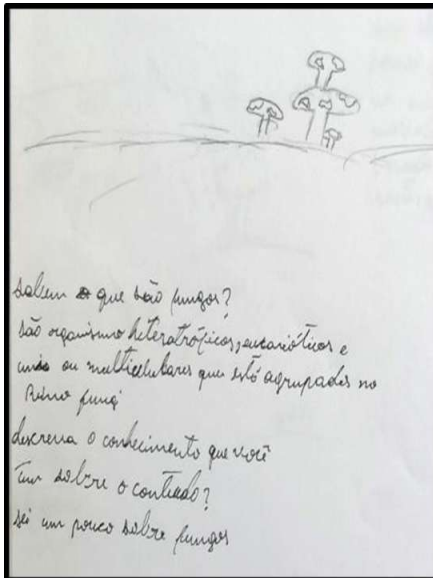 sabem o que são fungos?
são organismo heterotróficos, eucarióticos e
unis ou multicelulares que está agrupados no
Reino fungi
descreva o conhecimento que você
tem sobre o conteúdo?
sei um pouco sobre fungos